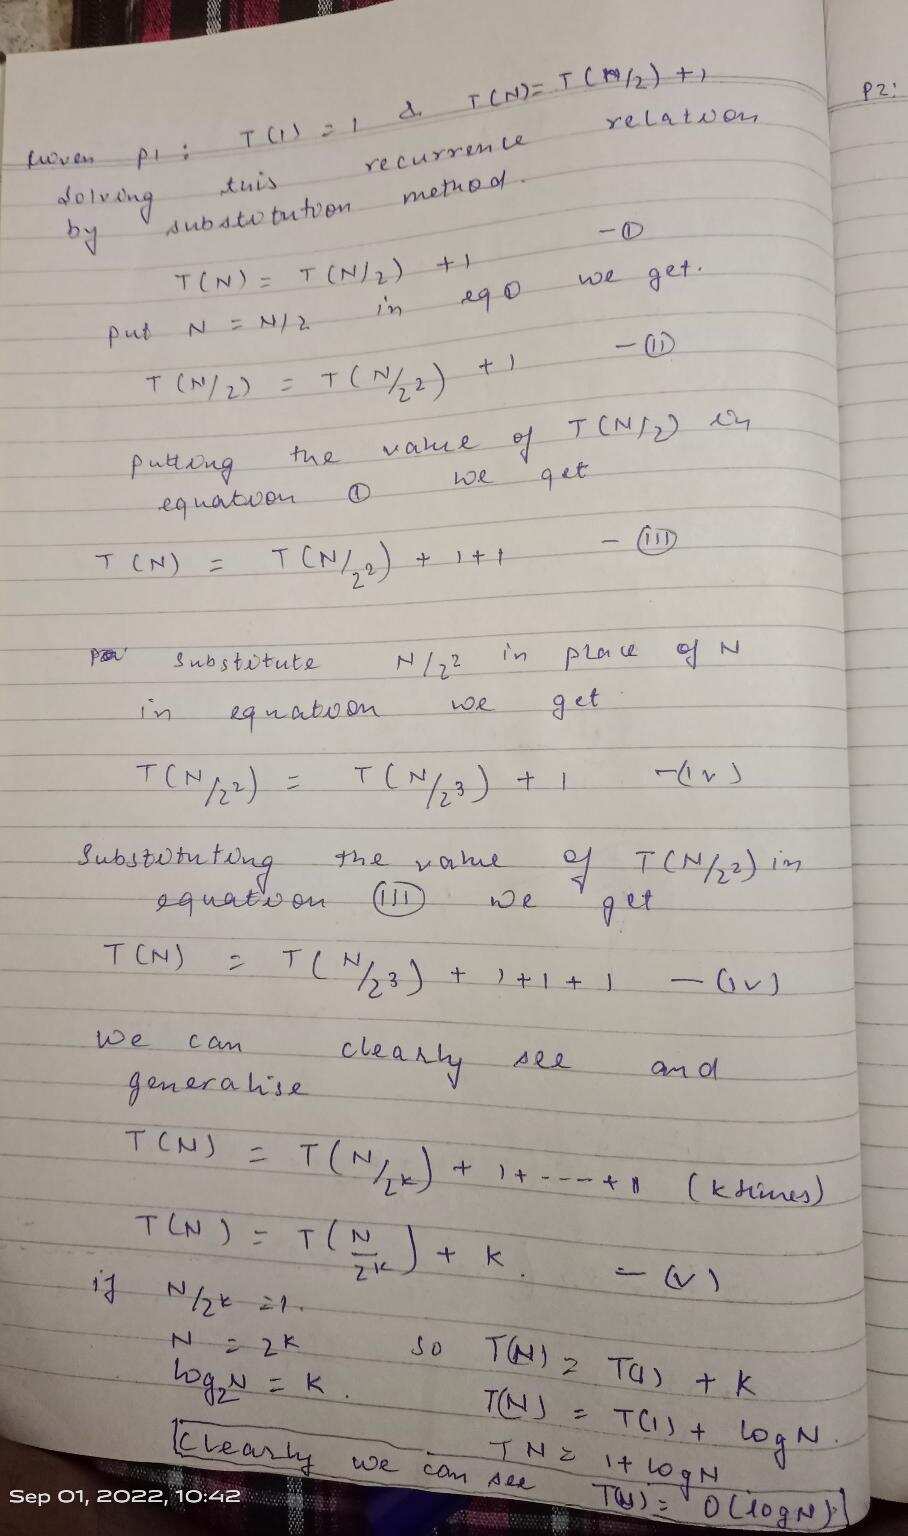 Given P1 : T(1) = 1 & T(N) = T(N/2) + 1
Solving this recurrence relation
by substitution method.
T(N) = T(N/2) + 1 - ①
put N = N/2 in eq ① we get.
T(N/2) = T(N/2²) + 1 - (ii)
putting the value of T(N/2) in
equation ① we get
T(N) = T(N/2²) + 1 + 1 - (iii)
substitute N/2² in place of N
in equation we get
T(N/2²) = T(N/2³) + 1 -(iv)
Substituting the value of T(N/2²) in
equation (iii) we get
T(N) = T(N/2³) + 1 + 1 + 1 - (iv)
we can clearly see and
generalise
T(N) = T(N/2ᵏ) + 1 + ---- + 1 (k times)
T(N) = T(N/2ᵏ) + k. - (v)
if N/2ᵏ = 1.
N = 2ᵏ so T(N) = T(1) + k
log₂N = k. T(N) = T(1) + log N.
TN = 1 + log N
Clearly we can see T(N) = O(log N).
P2:
Sep 01, 2022, 10:42